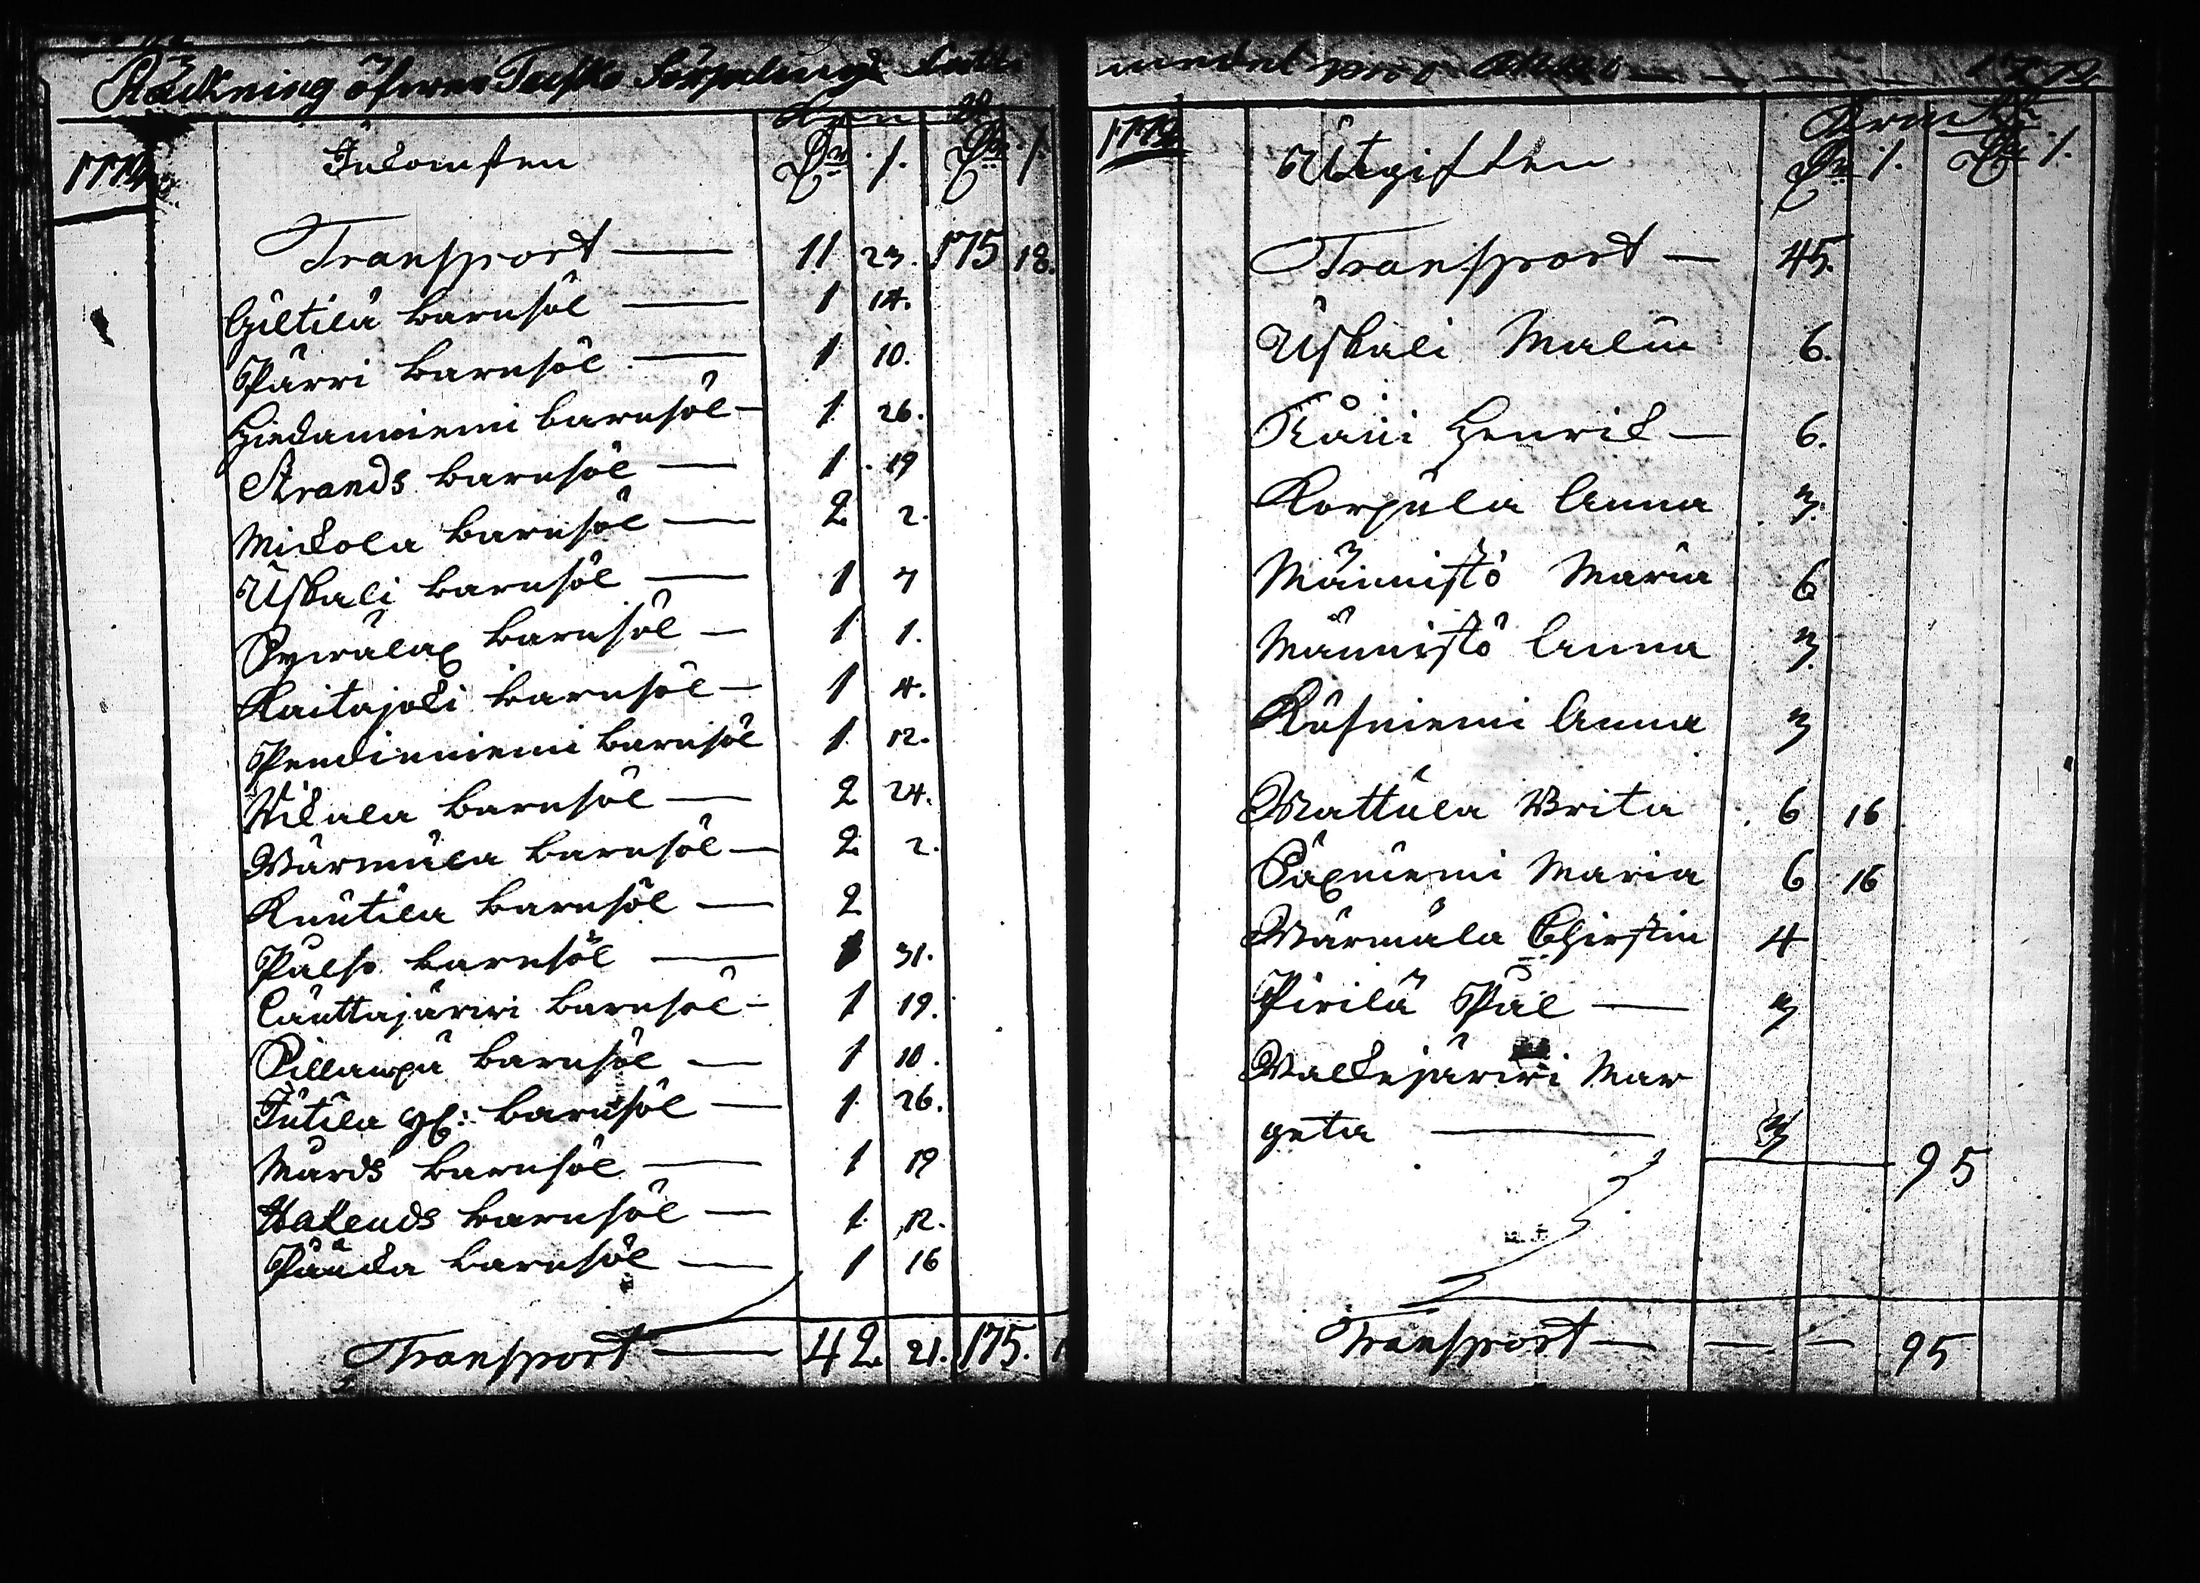 Räckning öfwer Teusko Församlings fatti
1772
Inkomsten
Dr ./. Dr ./.
Transport — 11 23. 175 18.
Gültilä barnsöl — 1 14.
Pärri barnsöl — 1 10.
Hiedanniemi barnsöl — 1 26.
Strands barnsöl — 1 19
Mickola barnsöl — 2 2.
Uskali barnsöl — 1 7
Pyrälax barnsöl — 1 1.
Kaitajoki barnsöl — 1 4.
Pendinniemi barnsöl 1 12.
Wikala barnsöl — 2 24.
Wärmälä barnsöl — 2 2.
Knutila barnsöl — 2
Palso barnsöl — 1 31.
Lauttajärwi barnsöl — 1 19.
Pillanpä barnsöl — 1 10.
Jutila barnsöl — 1 26.
Mårds barnsöl — 1 19
Hakends barnsöl — 1 12.
barnsöl — 1 16
Transport — 42. 21. 175.
medel pro Anno — — — — 1772
1772
Utgiften
Dr ./. Dr ./.
Transport — 45.
Uskali Malin 6.
Henrik — 6.
Korpula Anna 3.
Männistö Maria 6
Männistö Anna 3.
Anna 3
Mattula Brita 6 16
Paxniemi Maria 6 16
Wärmälä Christin 4
Pirilä Pål — 3
Walkejärwi Mar
geta — 3
95
Transport — — — 95